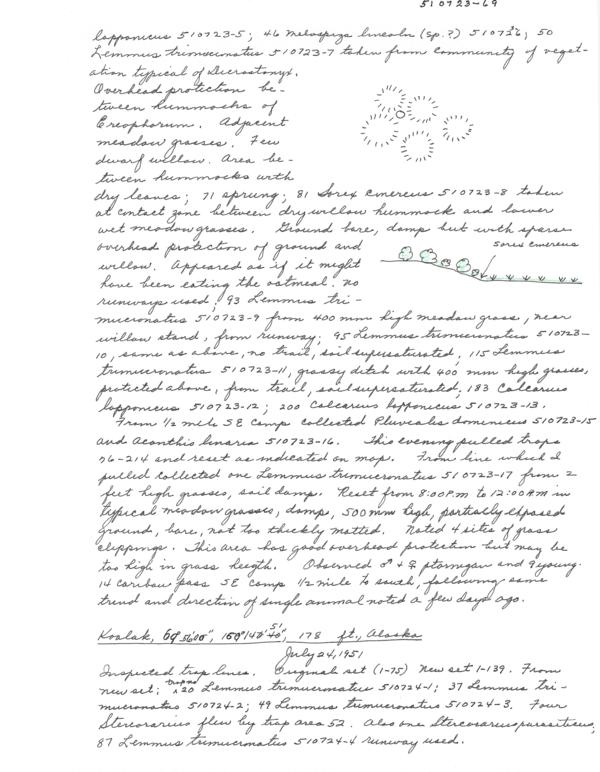 510723-69
lapponicus 510723-5; 46 Melospiza lincolni (sp.?) 510723-6; 50
Lemmus trimucronatus 510723-7 taken from community of veget-
ation typical of Dicrostonyx.
Overhead protection be-
tween hummocks of
Ereophorum. Adjacent
meadow grasses. Few
dwarf willow. Area be-
tween hummocks with
dry leaves; 71 sprung; 81 Sorex cinereus 510723-8 taken
at contact zone between dry willow hummock and lower
wet meadow grasses. Ground bare, damp but with sparse
overhead protection of ground and
sorex cinereus
willow. Appeared as if it might
have been eating the oatmeal. no
runways used; 93 Lemmus tri-
mucronatus 510723-9 from 400 mm high meadow grass, near
willow stand, from runway; 95 Lemmus trimucronatus 510723-
10, same as above, no trail, soil supersaturated, 115 Lemmus
trimucronatus 510723-11, grassy ditch with 400 mm high grasses,
protected above, from trail, soil supersaturated; 183 Calcarius
lapponicus 510723-12; 200 Calcarius lapponicus 510723-13.
From 1/2 mile SE camp collected Pluvealis dominicus 510723-15
and Acanthis linaria 510723-16. This evening pulled traps
76-214 and reset as indicated on map. From line which I
pulled collected one Lemmus trimucronatus 510723-17 from 2
feet high grasses, soil damp. Reset from 8:00 P.M to 12:00 A.M in
typical meadow grasses, damp, 500 mm high, partially exposed
ground, bare, not too thickly matted. Noted 4 sites of grass
clippings. This area has good overhead protection but may be
too high in grass heigth. Observed ♂ + ♀ ptarmigan and 9 young.
14 caribou pass SE camp 1/2 mile to south, following same
trend and direction of single animal noted a few days ago.
Kaolak, 69° 56'00", 159°/40' 51' 40", 178 ft., Alaska
July 24, 1951
Inspected trap lines. Original set (1-75) New set 1-139. From
new set; trap no 20 Lemmus trimucronatus 510724-1; 37 Lemmus tri-
mucronatus 510724-2; 49 Lemmus trimucronatus 510724-3. Four
Stercorarius flew by trap area 52. Also one Stercorarius parasiticus,
87 Lemmus trimucronatus 510724-4 runway used.